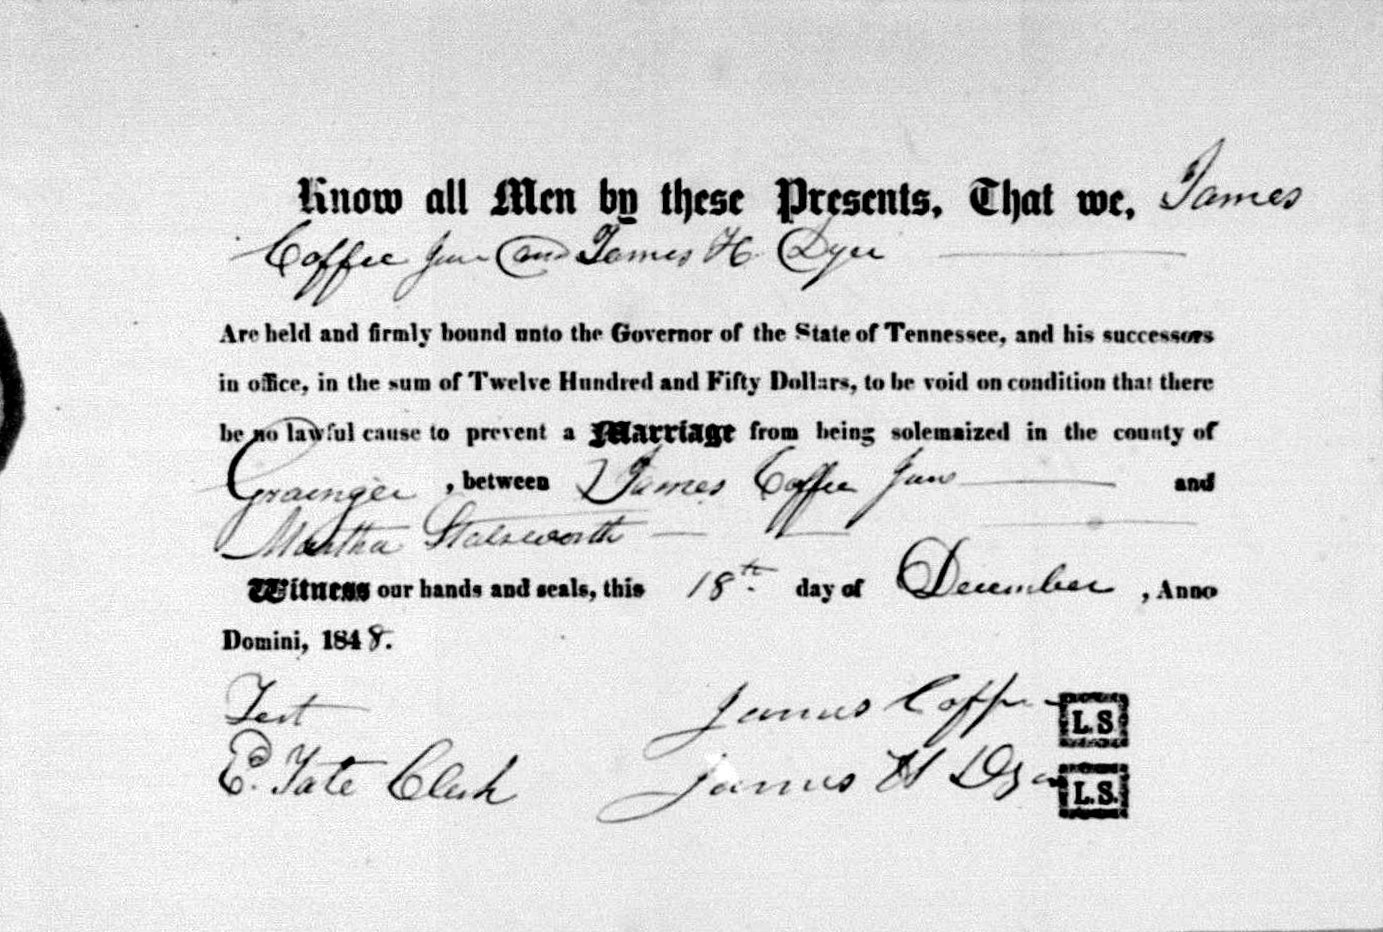 Know all Men by these Presents, That we, James
Coffee Junr and James H. Dyer
Are held and firmly bound unto the Governor of the State of Tennessee, and his successors
in office, in the sum of Twelve Hundred and Fifty Dollars, to be void on condition that there
be no lawful cause to prevent a Marriage from being solemnized in the county of
Grainger , between James Coffee Junr and
Martha Stalsworth
Witness our hands and seals, this 18th day of December , Anno
Domini, 1848.
Test James Coffee L.S
E. Tate Clerk James H Dyer L.S.